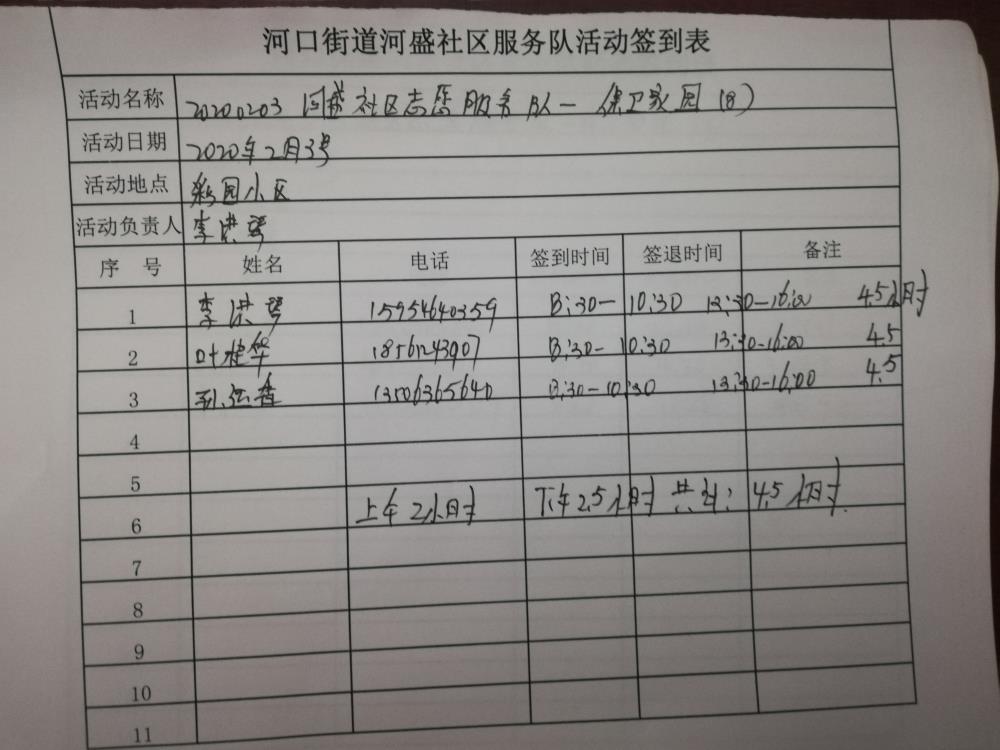 河口街道河盛社区服务队活动签到表
活动名称 20200203 河盛社区志愿服务队一 保卫家园(8)
活动日期 2020年2月3号
活动地点 彩园小区
活动负责人 李洪琴
序 号 姓名 电话 签到时间 签退时间 备注
1 李洪琴 15954640359 8:30— 10:30 13:30—16:00 4.5小时
2 叶桂华 18561243907 8:30- 10:30 13:30-16:00 4.5
3 13506365640 8:30-10:30 13:30-16:00 4.5
4
5
6 上午2小时 下午2.5小时 共计: 4.5小时.
7
8
9
10
11